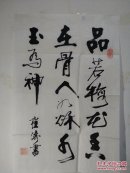 品若梅花香
在骨人如秋水
玉为神
書